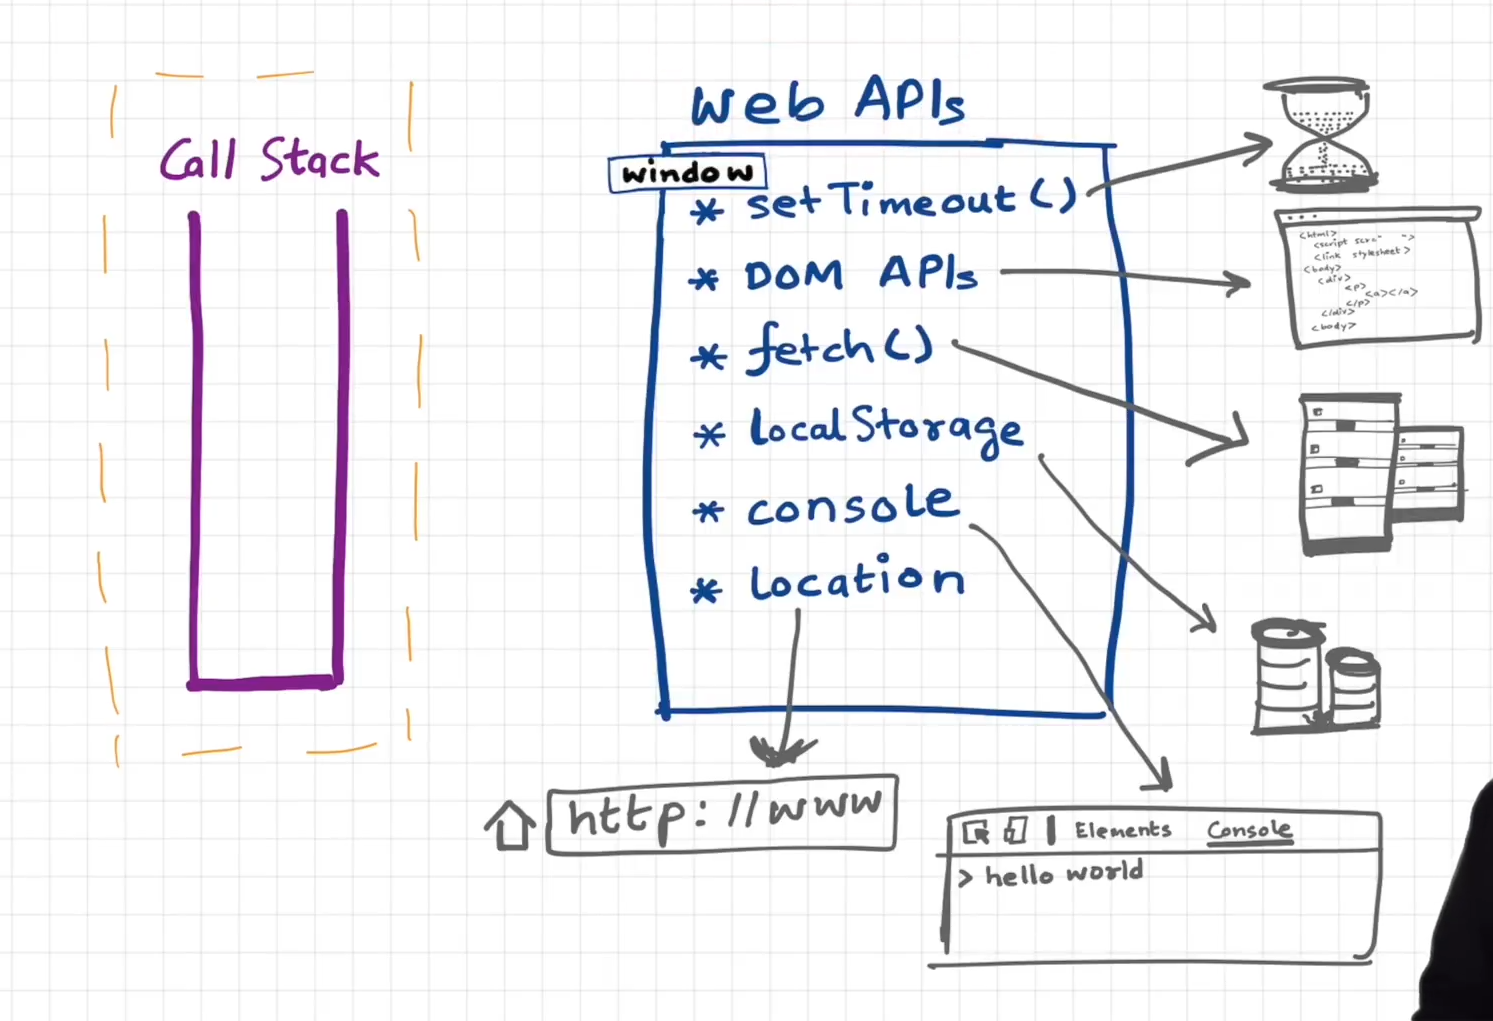 Web APIs
Call Stack
window
* setTimeout()
* DOM APIs
* fetch()
* localStorage
* console
* location
<html>
<script scr=" ">
<link stylesheet>
<body>
<div>
<p>
<a></a>
</p>
</div>
<body>
http://www
Elements Console
> hello world